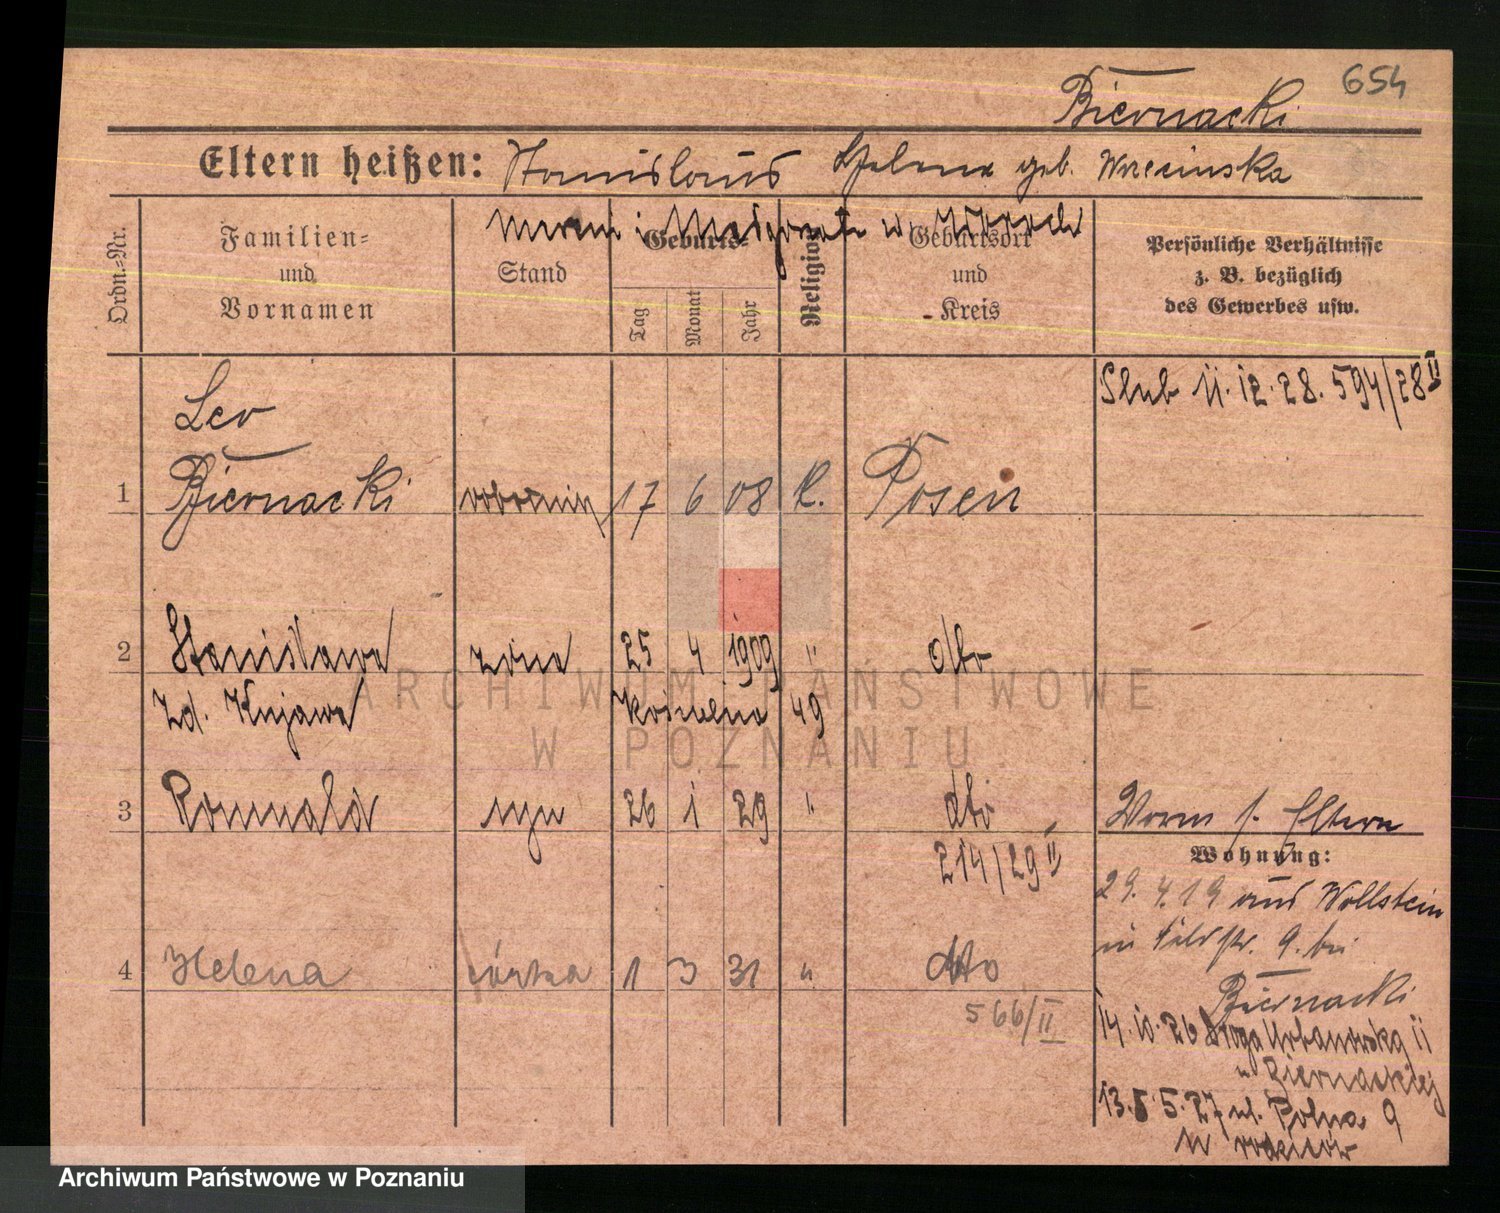 654
Biernacki
Eltern heißen: Stanislaus Helena geb. Wrzecinska
Ordn.-Nr.
Familien-
und
Vornamen
Stand
Geburts-
Tag
Monat
Jahr
Religion
Geburtsort
und
Kreis
Persönliche Verhältnisse
z. B. bezüglich
des Gewerbes usw.
Slub 11.12.28. 594/28 II
Leo
1 Biernacki robotnik 17 6 08 k. Posen
2 Stanisława żona 25 4 1909 " dto
zd. Kujawa 49
3 Romuald syn 26 1 29 " dto
214/29 II
4 Helena córka 1 3 31 " dto
566/II
Worm s. Eltern
Wohnung:
29.4.19 aus Wollstein
in Feldstr. 9. bei
Biernacki
14.10.26 Droga Urbanowska 11
u Biernackiej
13.5.27 ul. Polna 9
u rodziców
ARCHIWUM PAŃSTWOWE
W POZNANIU
Archiwum Państwowe w Poznaniu